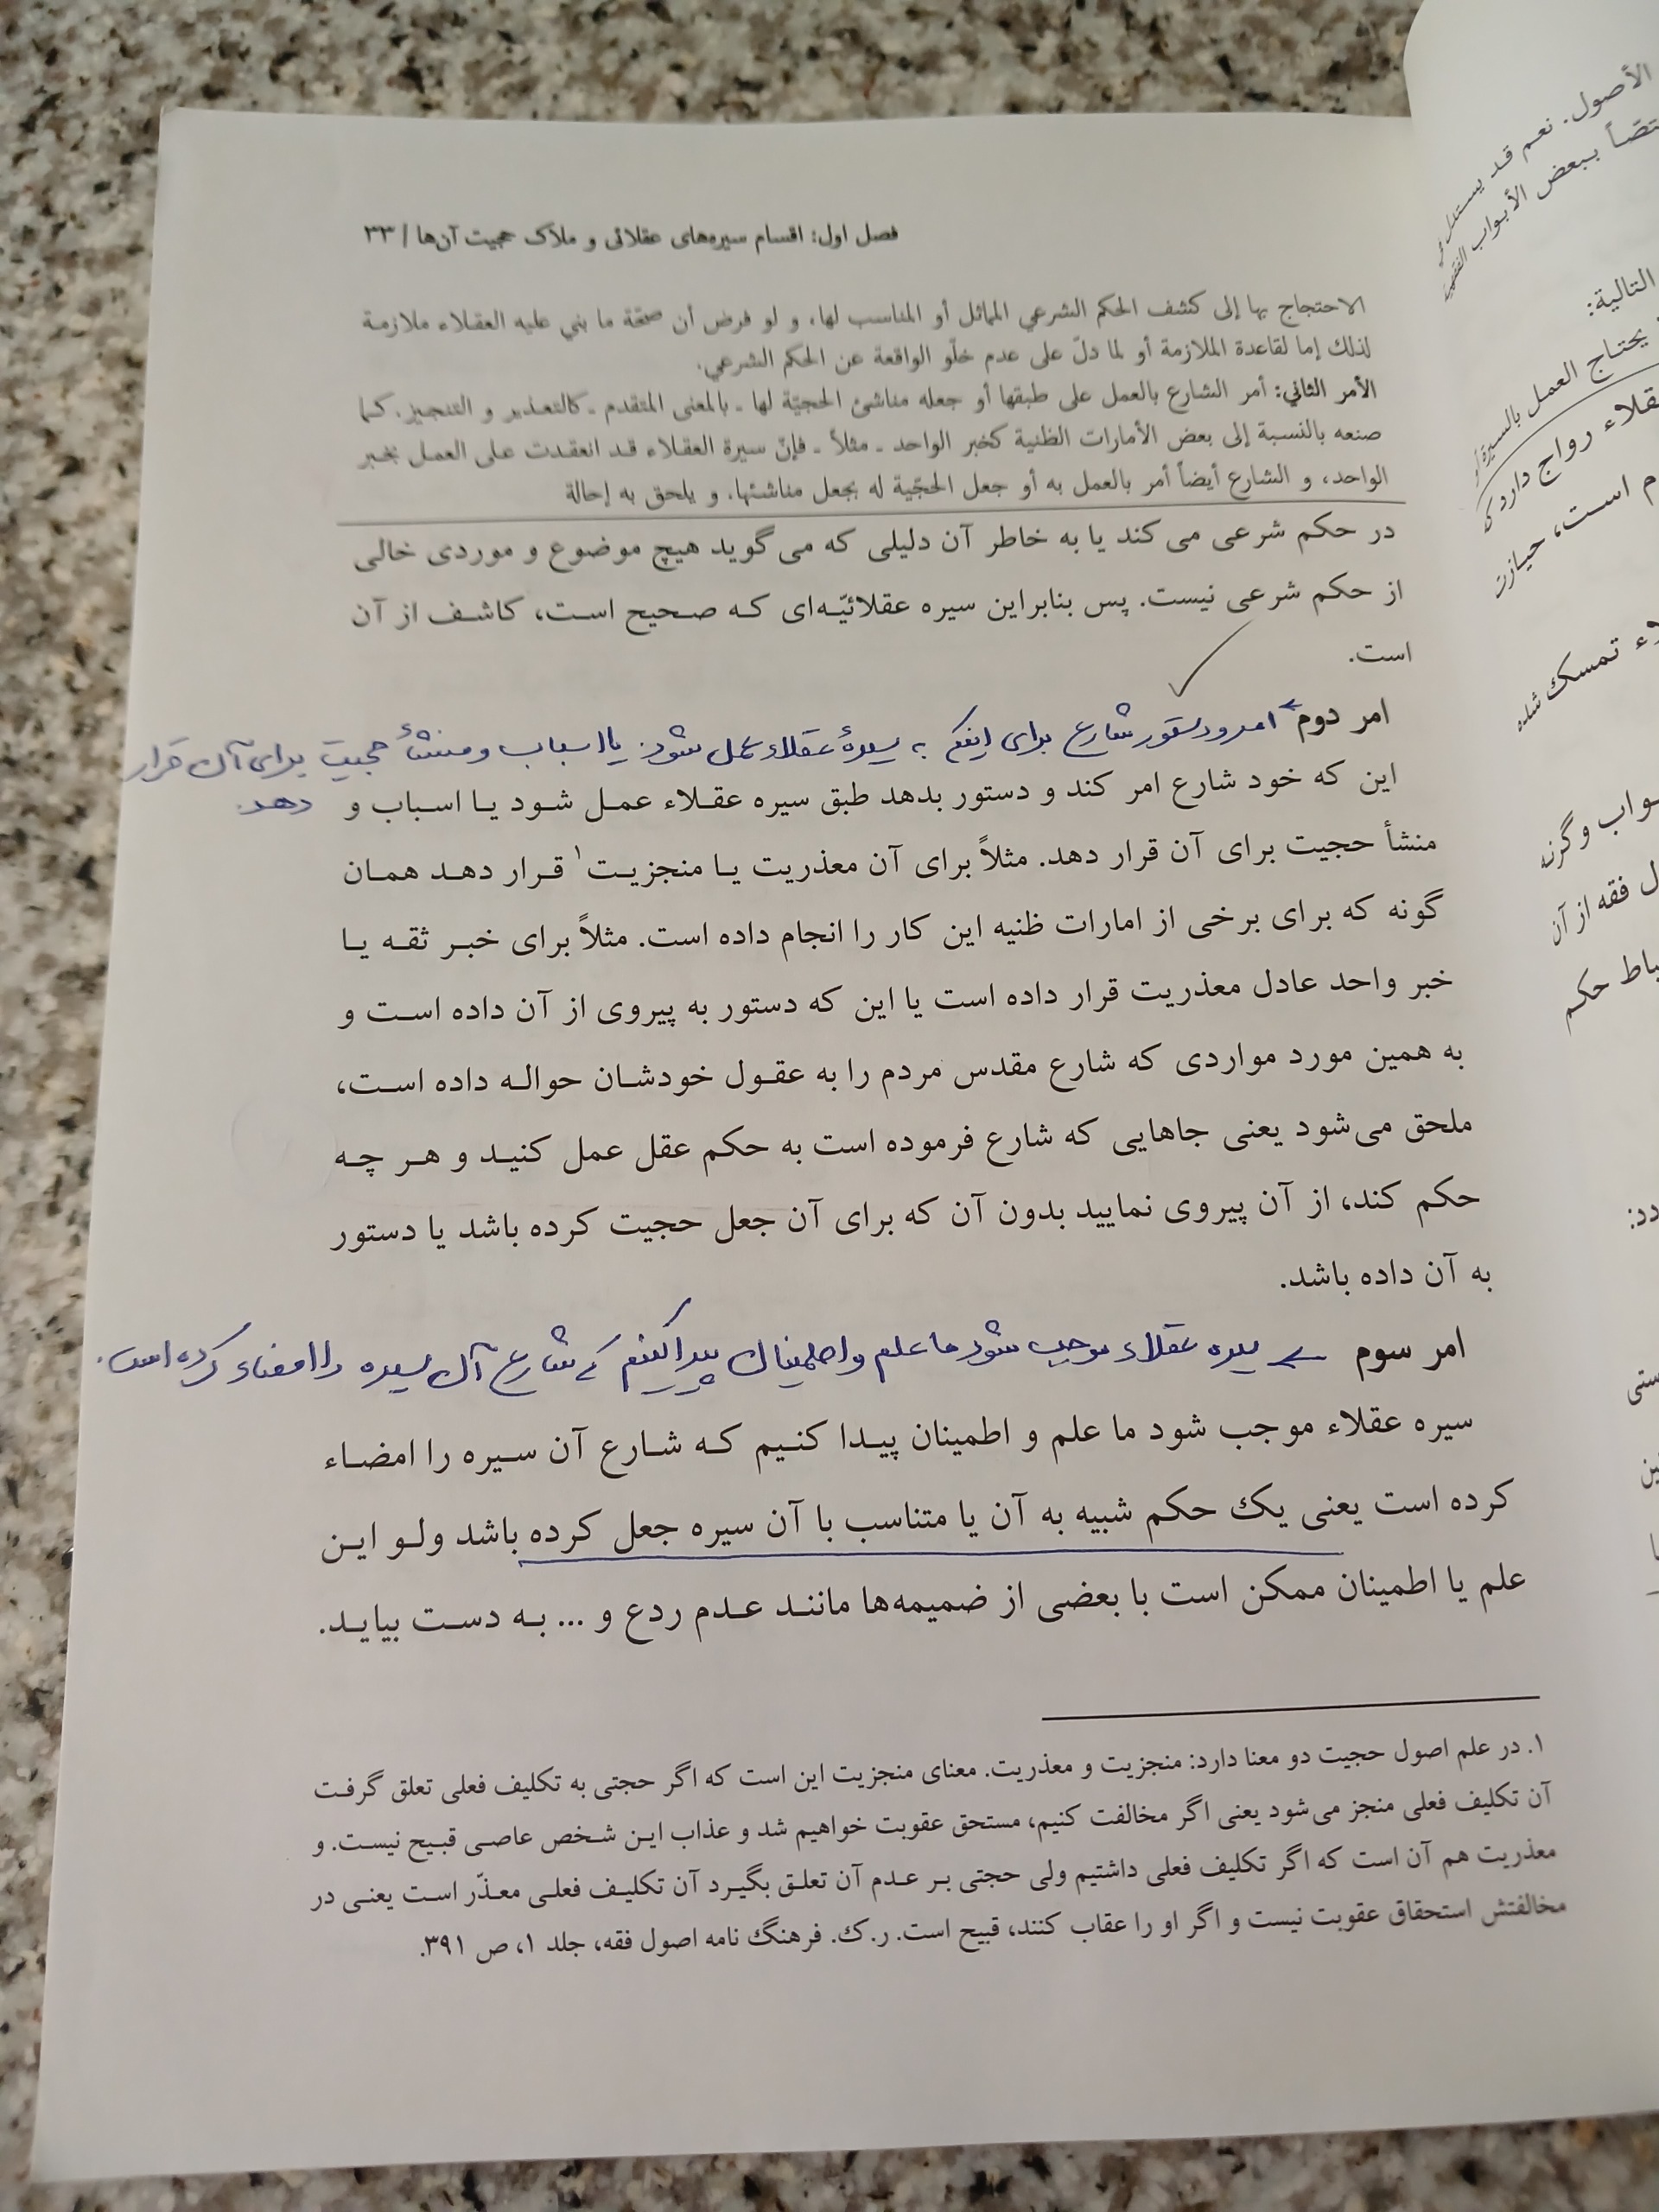 فصل اول: اقسام سیره‌های عقلائی و ملاک حجیت آن‌ها / ۳۳
الاحتجاج بها إلى كشف الحكم الشرعي المماثل أو المناسب لها، و لو فرض أن صحّة ما بني عليه العقلاء ملازمة
لذلك إما لقاعدة الملازمة أو لما دلّ على عدم خلّو الواقعة عن الحكم الشرعي.
الأمر الثاني: أمر الشارع بالعمل على طبقها أو جعله مناشئ الحجيّة لها ـ بالمعنى المتقدم ـ كالتعذير و التنجيز. كما
صنعه بالنسبة إلى بعض الأمارات الظنية كخبر الواحد ـ مثلاً ـ فإنّ سيرة العقلاء قد انعقدت على العمل بخبر
الواحد، و الشارع أيضاً أمر بالعمل به أو جعل الحجّية له بجعل مناشئها. و يلحق به إحالة
در حکم شرعی می‌کند یا به خاطر آن دلیلی که می‌گوید هیچ موضوع و موردی خالی
از حکم شرعی نیست. پس بنابراین سیره عقلائیّه‌ای که صحیح است، کاشف از آن
است.
امر دوم ← امر و دستور شارع برای اینکه به سیرهٔ عقلاء عمل شود. یا اسباب و منشأ حجیت برای آن قرار
دهد.
این که خود شارع امر کند و دستور بدهد طبق سیره عقلاء عمل شود یا اسباب و
منشأ حجیت برای آن قرار دهد. مثلاً برای آن معذریت یا منجزیت۱ قرار دهد همان
گونه که برای برخی از امارات ظنیه این کار را انجام داده است. مثلاً برای خبر ثقه یا
خبر واحد عادل معذریت قرار داده است یا این که دستور به پیروی از آن داده است و
به همین مورد مواردی که شارع مقدس مردم را به عقول خودشان حواله داده است،
ملحق می‌شود یعنی جاهایی که شارع فرموده است به حکم عقل عمل کنید و هر چه
حکم کند، از آن پیروی نمایید بدون آن که برای آن جعل حجیت کرده باشد یا دستور
به آن داده باشد.
امر سوم ← سیره عقلاء موجب شود ما علم و اطمینان پیدا کنیم که شارع آن سیره را امضاء کرده است.
سیره عقلاء موجب شود ما علم و اطمینان پیدا کنیم که شارع آن سیره را امضاء
کرده است یعنی یک حکم شبیه به آن یا متناسب با آن سیره جعل کرده باشد ولو این
علم یا اطمینان ممکن است با بعضی از ضمیمه‌ها مانند عدم ردع و ... به دست بیاید.
۱. در علم اصول حجیت دو معنا دارد: منجزیت و معذریت. معنای منجزیت این است که اگر حجتی به تکلیف فعلی تعلق گرفت
آن تکلیف فعلی منجز می‌شود یعنی اگر مخالفت کنیم، مستحق عقوبت خواهیم شد و عذاب این شخص عاصی قبیح نیست. و
معذریت هم آن است که اگر تکلیف فعلی داشتیم ولی حجتی بر عدم آن تعلق بگیرد آن تکلیف فعلی معذّر است یعنی در
مخالفتش استحقاق عقوبت نیست و اگر او را عقاب کنند، قبیح است. ر.ک. فرهنگ نامه اصول فقه، جلد ۱، ص ۳۹۱.
الأصول. نعم قد
ببعض الأبواب
التالية:
يحتاج العمل
رواج دارد
است، حیازت
تمسک شده
وگرنه
فقه از آن
حکم